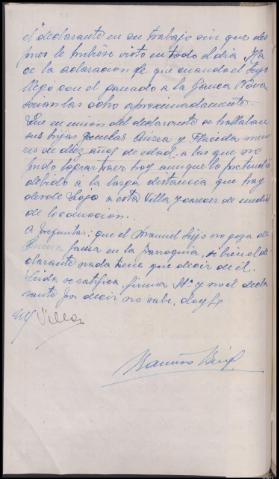 el declarante en su trabajo sin que des
pues le hubiese visto en todo el dia. Ha
ce la aclaracion de que cuando el Lago
llegó con el ganado a la Ganca Nova
serian las ocho aproximadamente.
Que en union del declarante se hallaban
sus hijas gemelas y Placida, meno
res de diez años de edad, a las que no
pudo lograr traer hoy aunque lo pretendió
debido a la larga distancia que hay
desde Lago a esta Villa y carecer de medios
de locomocion.
A preguntas: que el Manuel Lejo no goza de
buena fama en la parroquia, si bien el de
clarante nada tiene que decir de él.
Leida se ratifica, firma Sª y no el decla
rante por decir no saber, doy fe
Villar
Ramiro